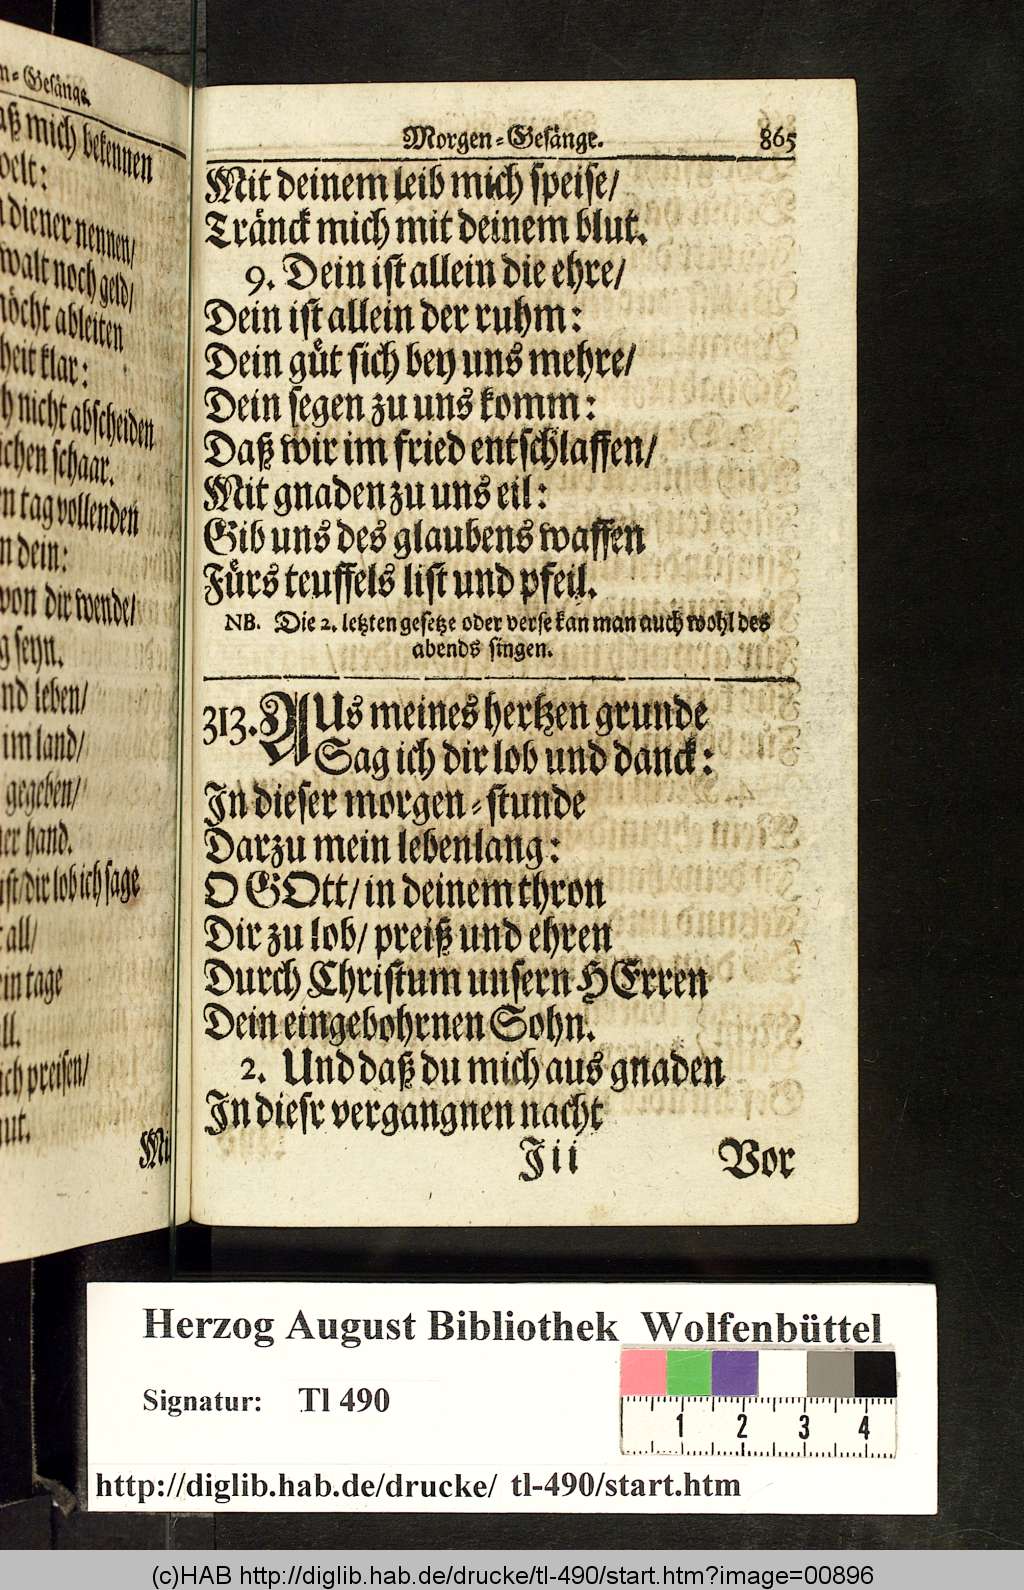 n-Gesänge.
aß mich bekennen
welt:
diener nennen/
walt noch geld/
möcht ableiten
heit klar:
h nicht abscheiden
ichen schaar.
n tag vollenden
n dein:
von dir wende/
g seyn.
nd leben/
im land/
gegeben/
ner hand.
ist/dir lob ich sage
all/
in tage
ll.
ich preisen/
gut.
Mit
Morgen-Gesänge. 865
Mit deinem leib mich speise/
Tränck mich mit deinem blut.
9. Dein ist allein die ehre/
Dein ist allein der ruhm:
Dein güt sich bey uns mehre/
Dein segen zu uns komm:
Daß wir im fried entschlaffen/
Mit gnaden zu uns eil:
Gib uns des glaubens waffen
Fürs teuffels list und pfeil.
NB. Die 2. letzten gesetze oder verse kan man auch wohl des
abends singen.
313. AUs meines hertzen grunde
Sag ich dir lob und danck:
In dieser morgen-stunde
Darzu mein lebenlang:
O GOtt/ in deinem thron
Dir zu lob/ preiß und ehren
Durch Christum unsern HErren
Dein eingebohrnen Sohn.
2. Und daß du mich aus gnaden
In diesr vergangnen nacht
Jii Vor
Herzog August Bibliothek Wolfenbüttel
Signatur: Tl 490
1 2 3 4
http://diglib.hab.de/drucke/ tl-490/start.htm
(c)HAB http://diglib.hab.de/drucke/tl-490/start.htm?image=00896